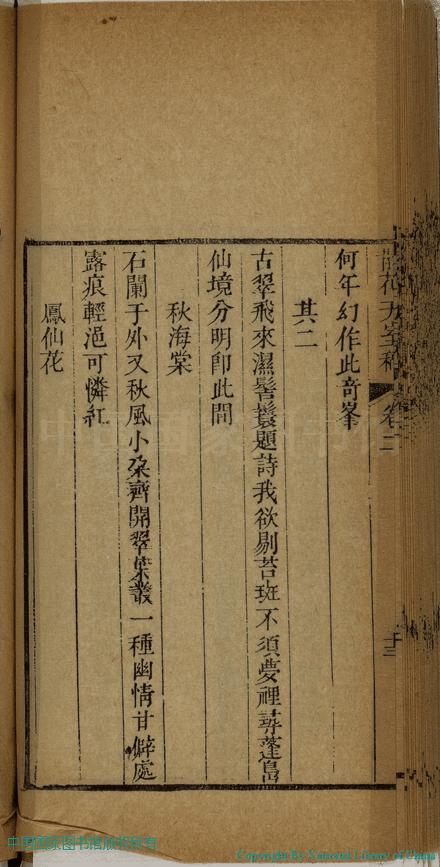 何年幻作此奇峯
其二
古翠飛來濕髻鬟題詩我欲剔苔斑不須夢裡尋蓬島
仙境分明卽此間
秋海棠
石闌于外又秋風小朶齊開翠葉叢一種幽情甘僻處
露痕輕浥可憐紅
鳳仙花
卷二
十三
中国国家图书馆版权所有
Copyright By National Library of China